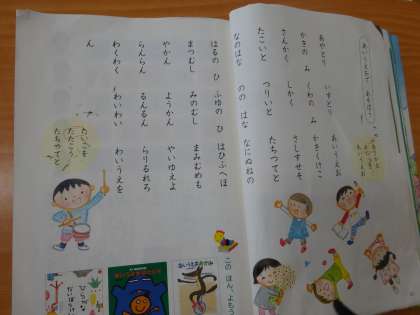 あいうえおで あそぼう
あやとり いすとり あいうえお
かきの み くわの み かきくけこ
さんかく しかく さしすせそ
たこいと つりいと たちつてと
なのはな のの はな なにぬねの
はるの ひ ふゆの ひ はひふへほ
まつむし みのむし まみむめも
やかん ようかん やいゆえよ
らんらん るんるん らりるれろ
わくわく わいわい わいうえを
ん
たいこを
たたこう
たちつてと
この ほん、よもう